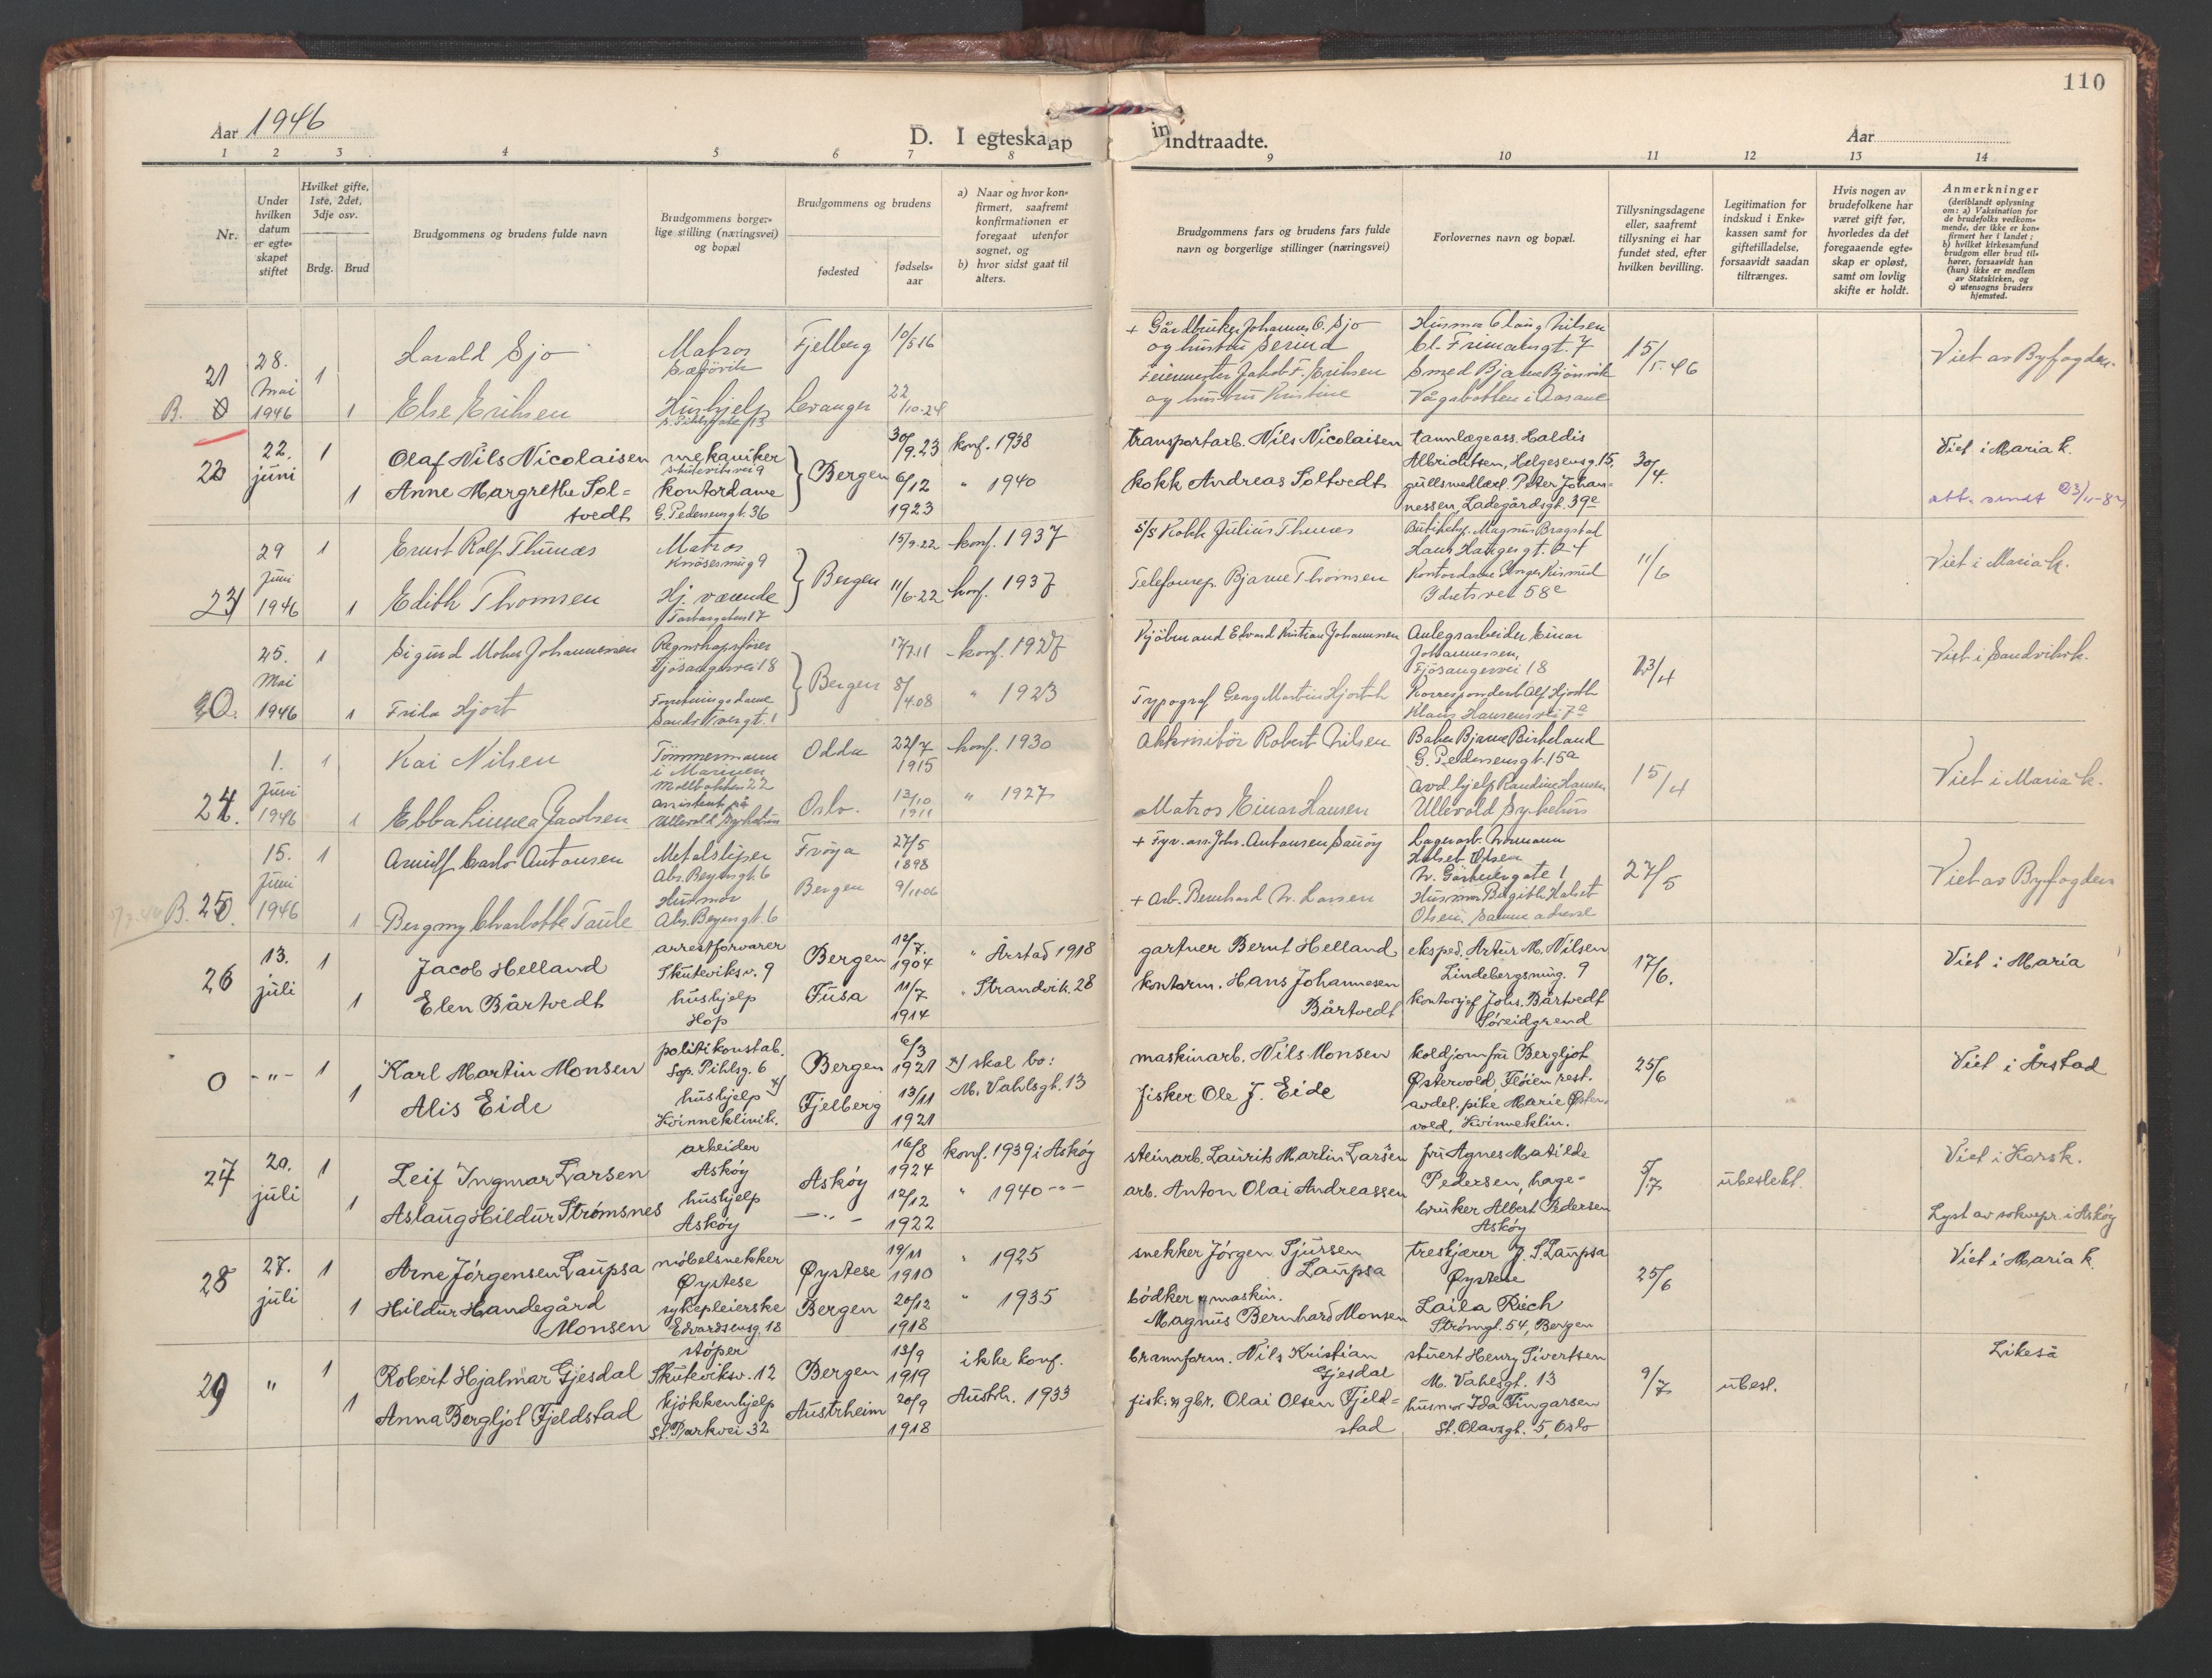 110
Aar 1946
D. I egteskap
in
indtraadte.
Aar
1 2 3 4 5 6 7 8 9 10 11 12 13 14
Nr.
Under hvilken datum er egteskapet stiftet
Hvilket gifte, 1ste, 2det, 3dje osv.
Brdg. Brud
Brudgommens og brudens fulde navn
Brudgommens borgerlige stilling (næringsvei) og bopæl
Brudgommens og brudens
fødested
fødselsaar
a) Naar og hvor konfirmert, saafremt konfirmationen er foregaat utenfor sognet, og
b) hvor sidst gaat til alters.
Brudgommens fars og brudens fars fulde navn og borgerlige stillinger (næringsvei)
Forlovernes navn og bopæl.
Tillysningsdagene eller, saafremt tillysning ei har fundet sted, efter hvilken bevilling.
Legitimation for indskud i Enkekassen samt for giftetilladelse, forsaavidt saadan tiltrænges.
Hvis nogen av brudefolkene har været gift før, hvorledes da det foregaaende egteskap er opløst, samt om lovlig skifte er holdt.
Anmerkninger
(deriblandt oplysning om: a) Vaksination for de brudefolks vedkommende, der ikke er konfirmert her i landet; b) hvilket kirkesamfund brudgom eller brud tilhører, forsaavidt han (hun) ikke er medlem av Statskirken, og c) utensogns bruders hjemsted.
21
B.
28. Mai 1946
1
1
Harald Sjo
Matros
Fjelberg
10/5 16
Else Eriksen
Hushjelp
Levanger
22/10-24
+ Gårdbruker Johannes O. Sjo
og hustru Serina
Feiermester Jakob F. Eriksen
og hustru Kristine
Husmor Olaug Nilsen
Cl. Frimannsgt. 7
Smed Bjarne Bjørsvik
Vågsbotten i Åsane
15/5-46
Viet av Byfogden.
22. juni
1
1
Olaf Nils Nicolaisen
mekaniker
Skuteviksvei 9
30/9.23
konf. 1938
Anne Margrethe Soltvedt
kontordame
G. Pedersensgt. 36
Bergen
6/12 1923
" 1940
transportarb. Nils Nicolaisen
kokk Andreas Soltvedt
tannlægeass. Haldis
Albriktsen, Helgesensg. 15,
gullsmedlærl. Peter Johannessen, Ladegårdsgt. 39c
30/4.
Viet i Maria k.
att. sendt
29 Juni 1946
1
1
Ernst Rolf Thunes
Matros
Knøsesmug 9
15/9.22
konf. 1937
Edith Thomsen
Hj. værende
Bergen
11/6.22
konf. 1937
S/S Kokk Julius Thunes
Telefonrep. Bjarne Thomsen
Magnus Bragstad
Hans Haugesgt. 24
Kontordame
Idretsvei 58c
11/6
Viet i Maria k.
25. Mai 1946
1
1
Sigurd Johannessen
Regnskapsfører
Fjøsangervei 18
17/7.11
konf. 1927
Frida Hjort
Forretningsdame
Bergen
8/4.08
" 1923
Kjøbmand Edvard Kristian Johannessen
Typograf Georg Martin Hjorth
Anlegsarbeider Einar
Johannessen,
Fjøsangervei 18
Korrespondent Alf Hjorth
Klaus Hansensvei 7a
23/4
Viet i Sandvikk.
24.
1. Juni 1946
1
1
Kai Nilsen
Tømmermann
i Marinen
Odda
22/7 1915
konf. 1930
Ebba Linnea Jacobsen
assistent på
Ullevold Sykehus
Oslo.
13/10 1911
" 1927
Akkvisitør Robert Nilsen
Matros Einar Hansen
Baker Bjarne Birkeland
G. Pedersensgt. 15a
avd. hjelp Randine Hansen
Ullevold Sykehus
15/4
Viet i Maria k.
B. 25
15. Juni 1946
1
1
Arnulf Carlo Antonsen
Metalsliper
Abs. Beyersgt. 6
Frøya
27/5 1898
Bergmy Charlotte Taule
Husmor
Abs. Beyersgt. 6
Bergen
9/11-06
+ Fyr. ass. Johs. Antonsen Sauøy
+ Arb. Bernhard N. Larsen
Lagerarb. Normann
Halset Olsen
Husmor Borgith Halset
Olsen. Samme adresse
27/5
Viet av Byfogden
26
13. juli
1
1
Jacob Helland
arrestforvarer
Skuteviksv. 9
Bergen
12/7. 1904
" Årstad 1918
Elen Bårtvedt
hushjelp
Hop
Fusa
11/7 1914
" Strandvik 28
gartner Bernt Helland
kontorm. Hans Johannesen
Bårtvedt
eksped. Artur M. Nilsen
Lindebergsmug. 9
kontorsjef Johs. Bårtvedt
Søreidgrend
17/6.
Viet i Maria
0
- " -
1
1
Karl Martin Monsen
politikonstab.
Sop. Pihlsg. 6
Bergen
6/3 1921
x) skal bo:
M. Vahlsgt. 13
Alis Eide
hushjelp x)
Kvinneklinik.
Fjelberg
13/11 1921
maskinarb. Nils Monsen
fisker Ole J. Eide
koldjomfru Bergljot
Østervold, Fløien rest.
avdel. pike Marie Østervold, Kvinneklin.
25/6
Viet i Årstad
27
20. juli
1
1
Leif Ingmar Larsen
arbeider
Askøy
Askøy
16/8 1924
konf. 1939 i Askøy
Aslaug Hildur Strømsnes
hushjelp
Askøy
- " -
12/12 1922
" 1940 - " -
steinarb. Laurits Martin Larsen
arb. Anton Olai Andreassen
fru Agnes Matilde
Pedersen, hagebruker Albert Pedersen
Askøy
5/7
ubeslekt.
Viet i Korsk.
Lyst av soknepr. i Askøy
28
27. juli
1
1
Arne Jørgensen Laupsa
møbelsnekker
Øystese
Øystese
19/11 1910
" 1925
Hildur Handegård
Monsen
sykepleierske
Edvardsensg. 18
Bergen
20/12 1918
" 1935
snekker Jørgen Sjursen
Laupsa
bødker & maskin.
Magnus Bernhard Monsen
treskjærer J. S. Laupsa
Øystese
Laila Riech
Strømgt. 54, Bergen
25/6
Viet i Maria k.
29
"
1
1
Robert Hjalmar Gjesdal
støper
Skuteviksv. 12
Bergen
13/9 1919
ikke konf.
Anna Bergljot Fjeldstad
kjøkkenhjelp
St. Parkvei 32
Austrheim
20/9 1918
Austrh. 1933
brannform. Nils Kristian
Gjesdal
fisk. & gbr. Olai Olsen Fjeldstad
stuert Henry Sivertsen
M. Vahlsgt. 13
husmor Ida Fingarsen
St. Olavsgt. 5, Oslo
9/7
ubesl.
Likeså